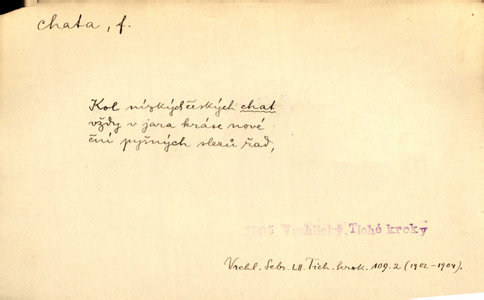 chata, f.
Kol nízkých českých chat
vždy v jara kráse nové
ční pyšných slezů řad,
1905 Vrchlický, Tiché kroky
Vrchl. Sebr. LII Tich. krok. 109. 2 (1902-1904).